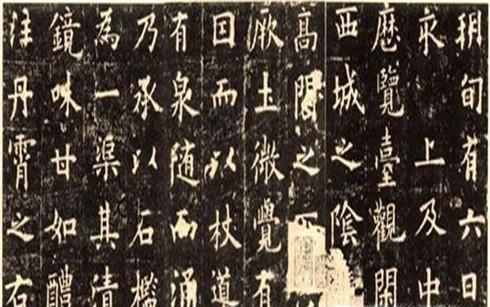 朔旬有六日
亥上及中
歷覽臺觀閑
西城之陰
高閣之下
厥土微覺有
因而以杖導
有泉随而涌
乃承以石檻
為一渠其清
鏡味甘如醴
注丹霄之右